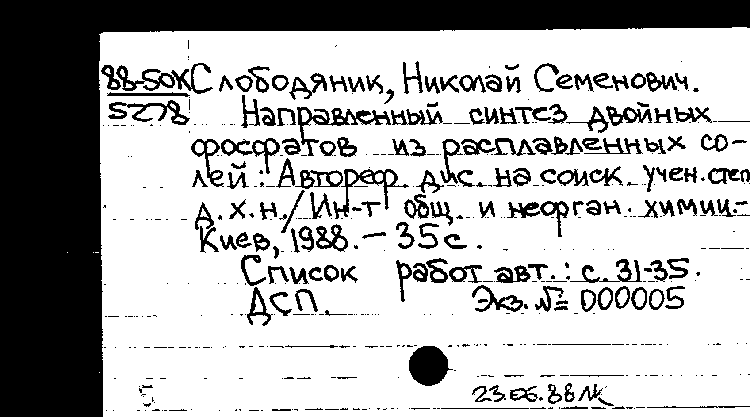 88-50К Слободяник, Николай Семенович.
5278 Направленный синтез двойных
фосфатов из расплавленных со-
лей : Автореф. дис. на соиск. учен. степ
д. х. н. / Ин-т общ. и неорган. химии.-
Киев, 1988. - 35 с.
Список работ авт. : с. 31-35.
ДСП. Экз. № 000005
5 23.06.88